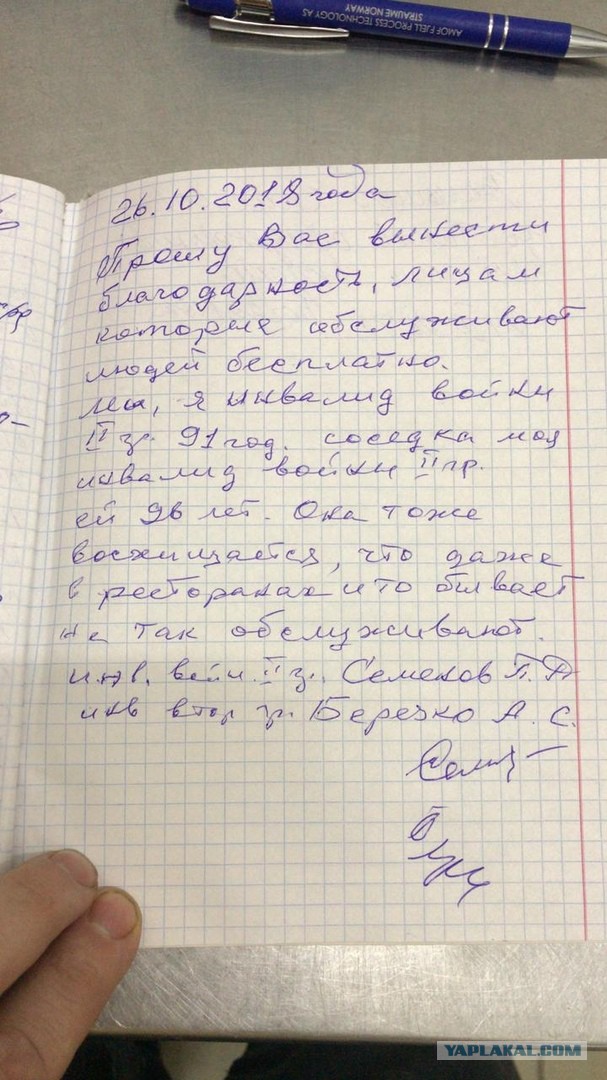 AMOF FJELL PROCESS TECHNOLOGY AS
STRAUME NORWAY
26.10.2018 года
Прошу Вас вынести
благодарность, лицам
которые обслуживают
людей бесплатно.
Мы, я инвалид войны
II гр. 91 год. соседка моя
инвалид войны II гр.
ей 96 лет. Она тоже
восхищается, что даже
в ресторанах и то бывает
не так обслуживают.
инв. войн. II гр. Семенов П.Д
инв втор гр. Березко А. С.
YAPLAKAL.COM